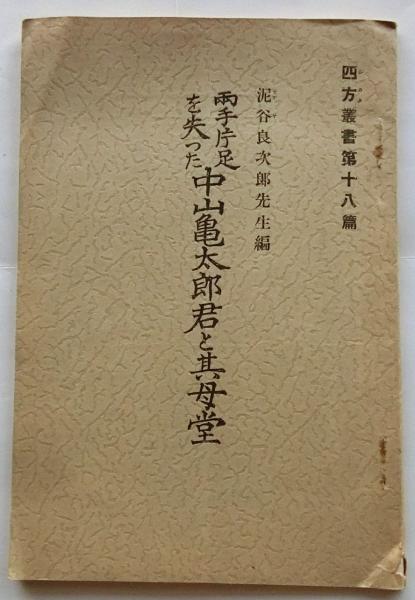 四方叢書第十八篇
泥谷良次郎先生編
両手片足
を失つた
中山亀太郎君と其母堂